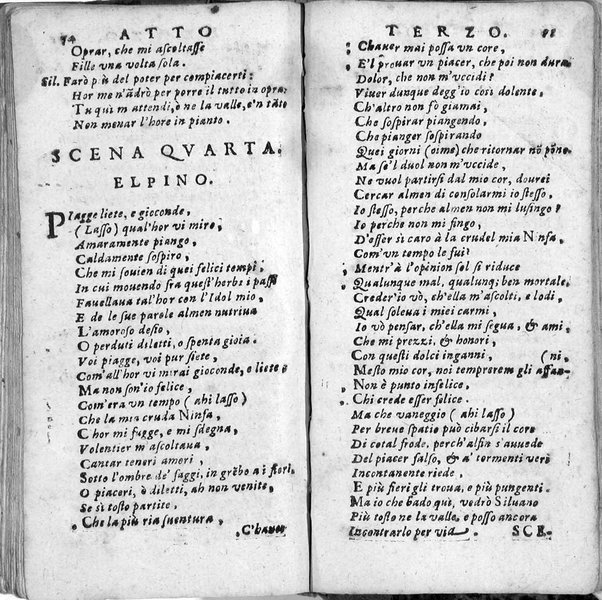 74 ATTO
Oprar, che mi ascoltasse
Fille vna volta sola.
Sil. Farò più del poter per compiacerti:
Hor me n'ãdrò per porre il tutto in opra:
Tu quì m attendi, ò ne la valle, e'n tãto
Non menar l'hore in pianto.
SCENA QVARTA.
ELPINO.
PIagge liete, e gioconde,
(Lasso) qual'hor vi miro,
Amaramente piango,
Caldamente sospiro,
Che mi souien di quei felici tempi,
In cui mouendo fra quest'herbe i passi
Fauellaua tal'hor con l'Idol mio,
E de le sue parole almen nutriua
L'amoroso desio,
O perduti diletti, o spenta gioia.
Voi piagge, voi pur siete,
Com'all'hor vi mirai gioconde, e liete
Ma non son'io felice,
Com'era vn tempo (ahi lasso)
Che la mia cruda Ninfa,
C hor mi fugge, e mi sdegna,
Volentier m'ascoltaua,
Cantar teneri amori,
Sotto l'ombre de' faggi, in grẽbo a i fiori.
O piaceri, ò diletti, ah non venite,
Se sì tosto partite,
Che la più ria suentura,
C'hauer
TERZO.
C'hauer mai possa vn core,
E'l prouar vn piacer, che poi non dura.
Dolor, che non m'vccidi?
Viuer dunque degg'io così dolente,
Ch'altro non fò giamai,
Che sospirar piangendo,
Che pianger sospirando
Quei giorni (oime) che ritornar nõ põno.
Ma se'l duol non m'vccide,
Ne vuol partirsi dal mio cor, dourei
Cercar almen di consolarmi io stesso,
Io stesso, perche almen non mi lusingo?
Io perche non mi fingo,
D'esser sì caro à la crudel mia Ninfa,
Com'vn tempo le fui?
Mentr'à l'opinion sol si riduce
Qualunque mal, qualunq; ben mortale,
Creder'io vò, ch'ella m'ascolti, e lodi,
Qual soleua i miei carmi,
Io vò pensar, ch'ella mi segua, & ami,
Che mi prezzi, & honori,
Con questi dolci inganni, (ni,
Mesto mio cor, noi temprerem gli affan-
Non è punto infelice,
Chi crede esser felice.
Ma che vaneggio (ahi lasso)
Per breue spatio può cibarsi il core
Di cotal frode, perch'alfin s'auuede
Del piacer falso, & a' tormenti veri
Incontanente riede,
E più fieri gli troua, e più pungenti.
Ma io che bado quì, vedrò Siluano
Più tosto ne la valle, e posso ancora
Incontrarlo per via. SCE-